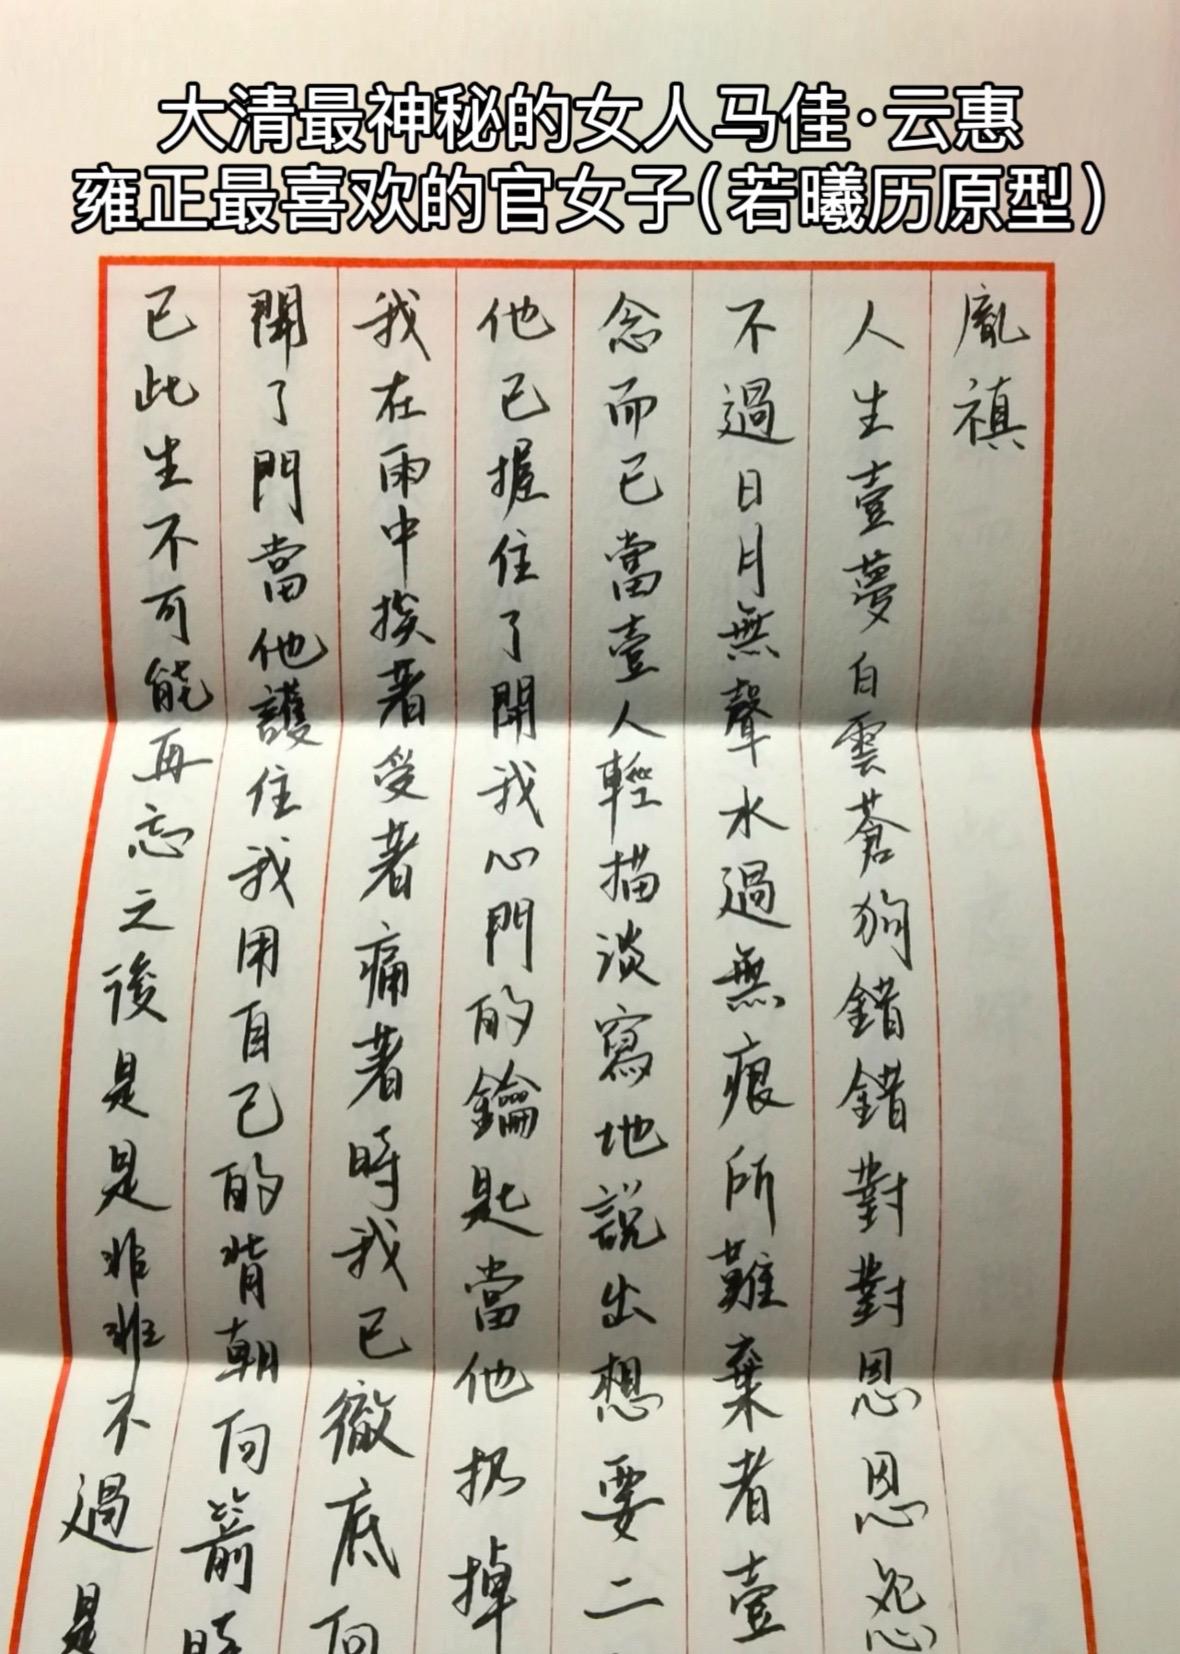 大清最神秘的女人马佳·云惠
雍正最喜欢的官女子(若曦历原型)
胤禛
人生壹夢白雲蒼狗錯錯對對恩恩怨
不過日月無聲水過無痕所難棄者壹
念而已當壹人輕描淡寫地說出想要二
他已握住了開我心門的鑰匙當他扔掉
我在雨中挨著受著痛著時我已徹底向
開了門當他護住我用自己的背朝向箭時
已此生不可能再忘之後是是非非不過是